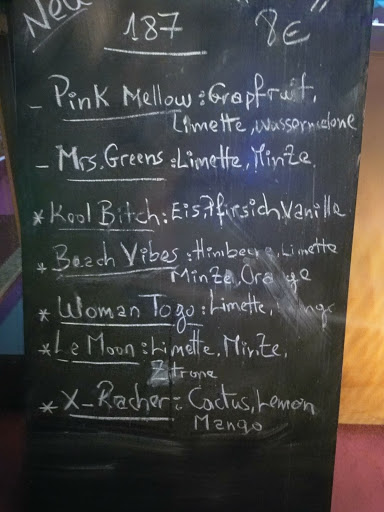 Neu
187 8€
- Pink Mellow: Grapfruit,
Limette, Wassermelone
- Mrs. Greens: Limette, Minze,
* Kool Bitch: Eis, Pfirsich, Vanille
* Beach Vibes: Himbeere, Limette
Minze, Orange
* Woman To go: Limette,
* Le Moon: Limette, Minze,
Zitrone
* X-Racher: Cactus, Lemon
Mango